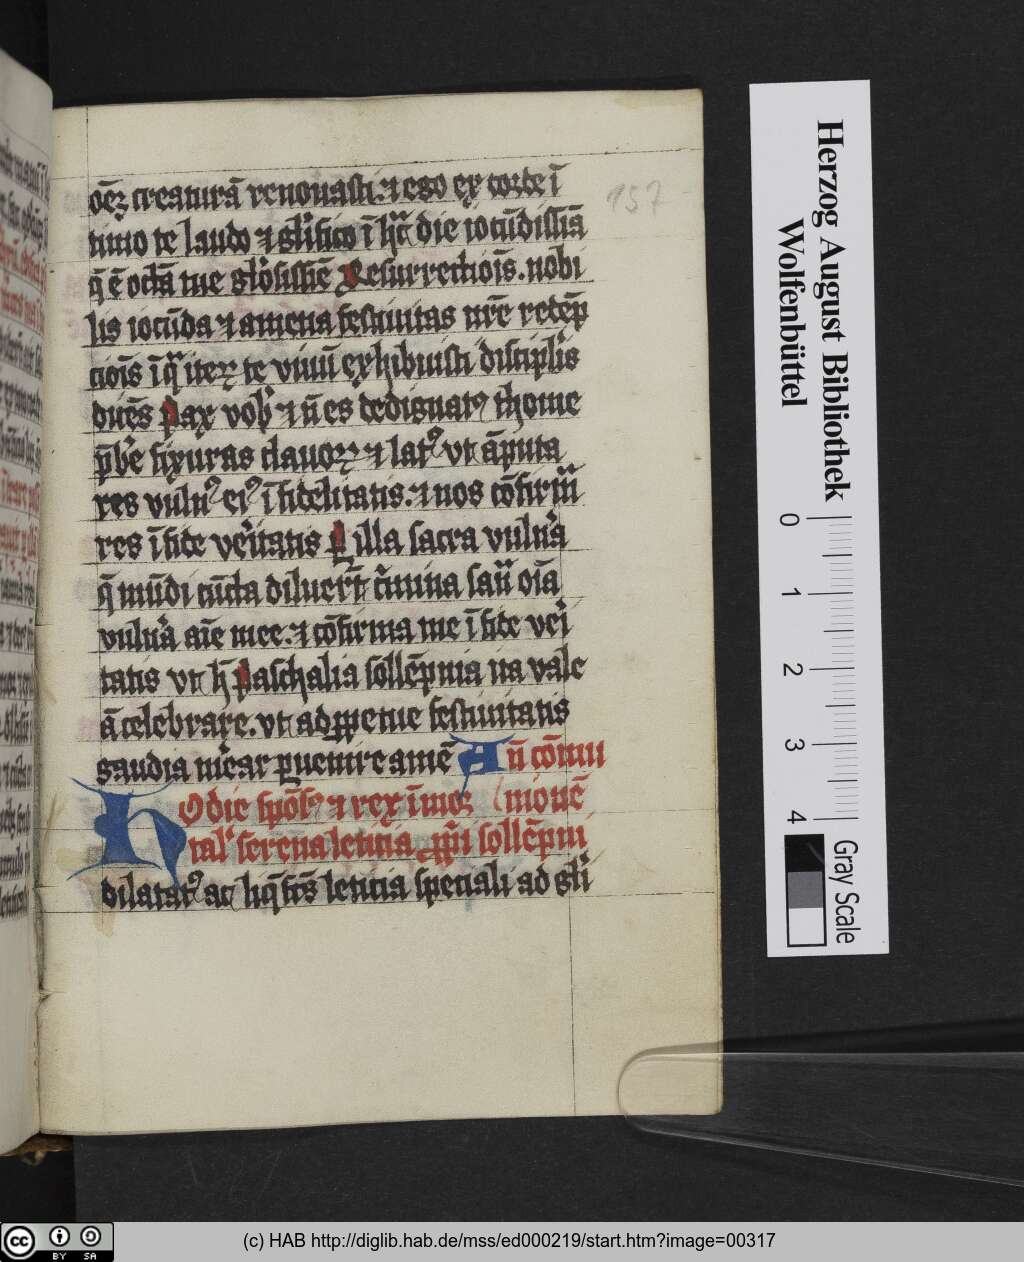 oēꝝ creaturā renouasti. ⁊ ego ex corde ī
timo te laudo ⁊ glīfico ī hac die iocūdissīa
q̄ ē octā tue glōsissīe Resurrectiōīs. nobi
lis iocūda ⁊ amena festiuitas nr̄e redēp
ciōīs ī q̄ iteꝝ te viuū exhibuisti discipl̄is
dicēs Pax vob̾ ⁊ n̄ es dedignatꝰ thome
p̄bē fixuras clauoꝝ ⁊ latꝰ vt āputa
res vulnꝰ eiꝰ īfidelitatis. ⁊ nos cōfirma
res ī fide veritatis P illa sacra vuln̄a
q̄ mūdi cūcta diluerūt crimina sana oīa
vuln̄a aīe mee. ⁊ cōfirma me ī fide veri
tatis vt h̄ Paschalia sollēpnia ita vale
ā celebrare. vt ad ꝑpetue festiuitatis
gaudia merear ꝑuenire amē An̄ cōmu
Odie spōsꝰ ⁊ rex īmoꝝ nionē
tal' serena leticia
dilatatꝰ ac leticia speciali ad gl̄i
157
Herzog August Bibliothek
Wolfenbüttel
0 1 2 3 4
Gray Scale
cc BY SA
(c) HAB http://diglib.hab.de/mss/ed000219/start.htm?image=00317